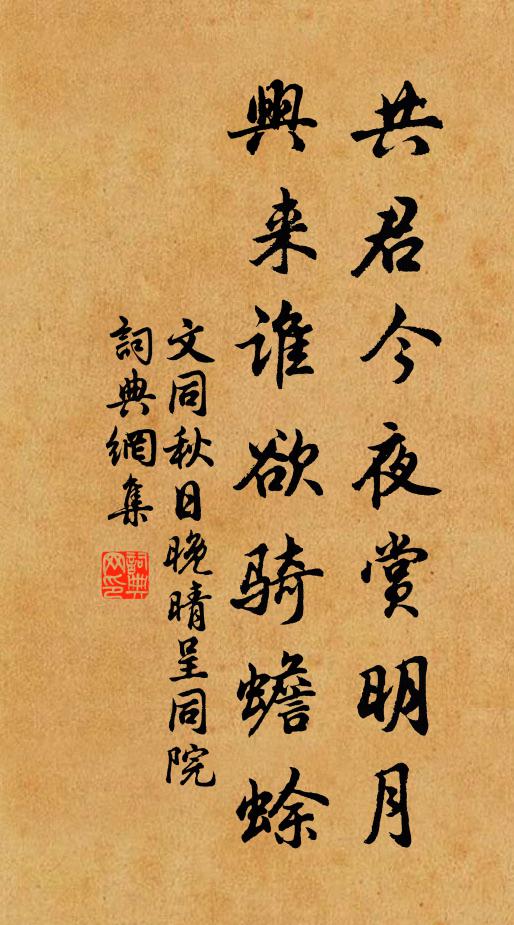 共君今夜赏明月
興来谁欲骑蟾蜍
文同秋日晚晴呈同院
詞典網集
詞典網印